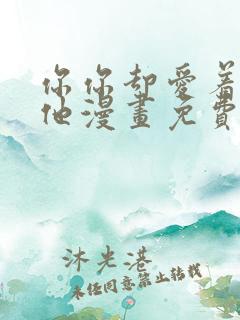 你你却愛着
他漫畫免費
沐光港
未经同意禁止转载